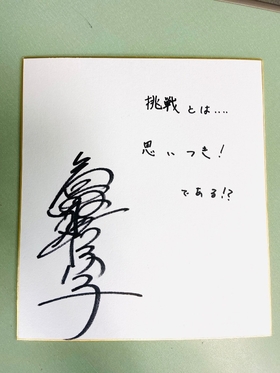 挑戦とは....
思いつき!
である!?